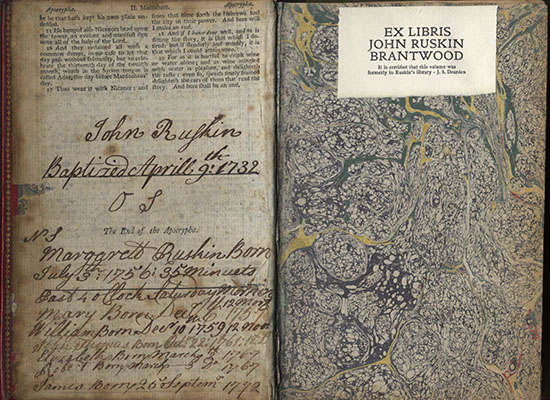 Apocrypha. II. Maccabees. Apocrypha.
be he that hath kept his own place un-
defiled.
35 He hanged also Nicanors head upon the
tower, an evident and manifest sign
unto all of the help of the Lord.
36 And they ordained all with a
common decree, in no case to let that
day pass without solemnity, but to cele-
brate the thirteenth day of the twelfth
month, which in the Syrian tongue is
called Adar, the day before Mardocheus
day.
37 Thus went it with Nicanor: and
from that time forth the Hebrews had
the city in their power. And here will
I make an end.
38 And if I have done well, and as is
fitting the story, it is that which I de-
sired: but if slenderly and meanly, it is
that which I could attain unto.
39 For as it is hurtful to drink wine
or water alone; and as wine mingled
with water is pleasant, and delighteth
the taste: even so speech finely framed
delighteth the ears of them that read the
story. And here shall be an end.
John Ruskin
Baptized Aprill 9th: 1732
O S
The End of the Apocrypha.
N S
Margrett Ruskin Born
July 3th: 1756: 35 Minuets
Past 4 o Clock Saturday Morning
Mary Born 1757
William Born Decr 10 1759 12 Noon
Thomas Born Oct 22 1761
Elizabeth Born March 1767
Born March 1767
James Born 26 Septemr 1772
EX LIBRIS
JOHN RUSKIN
BRANTWOOD
It is certified that this volume was
formerly in Ruskin's library - J. S. Dearden